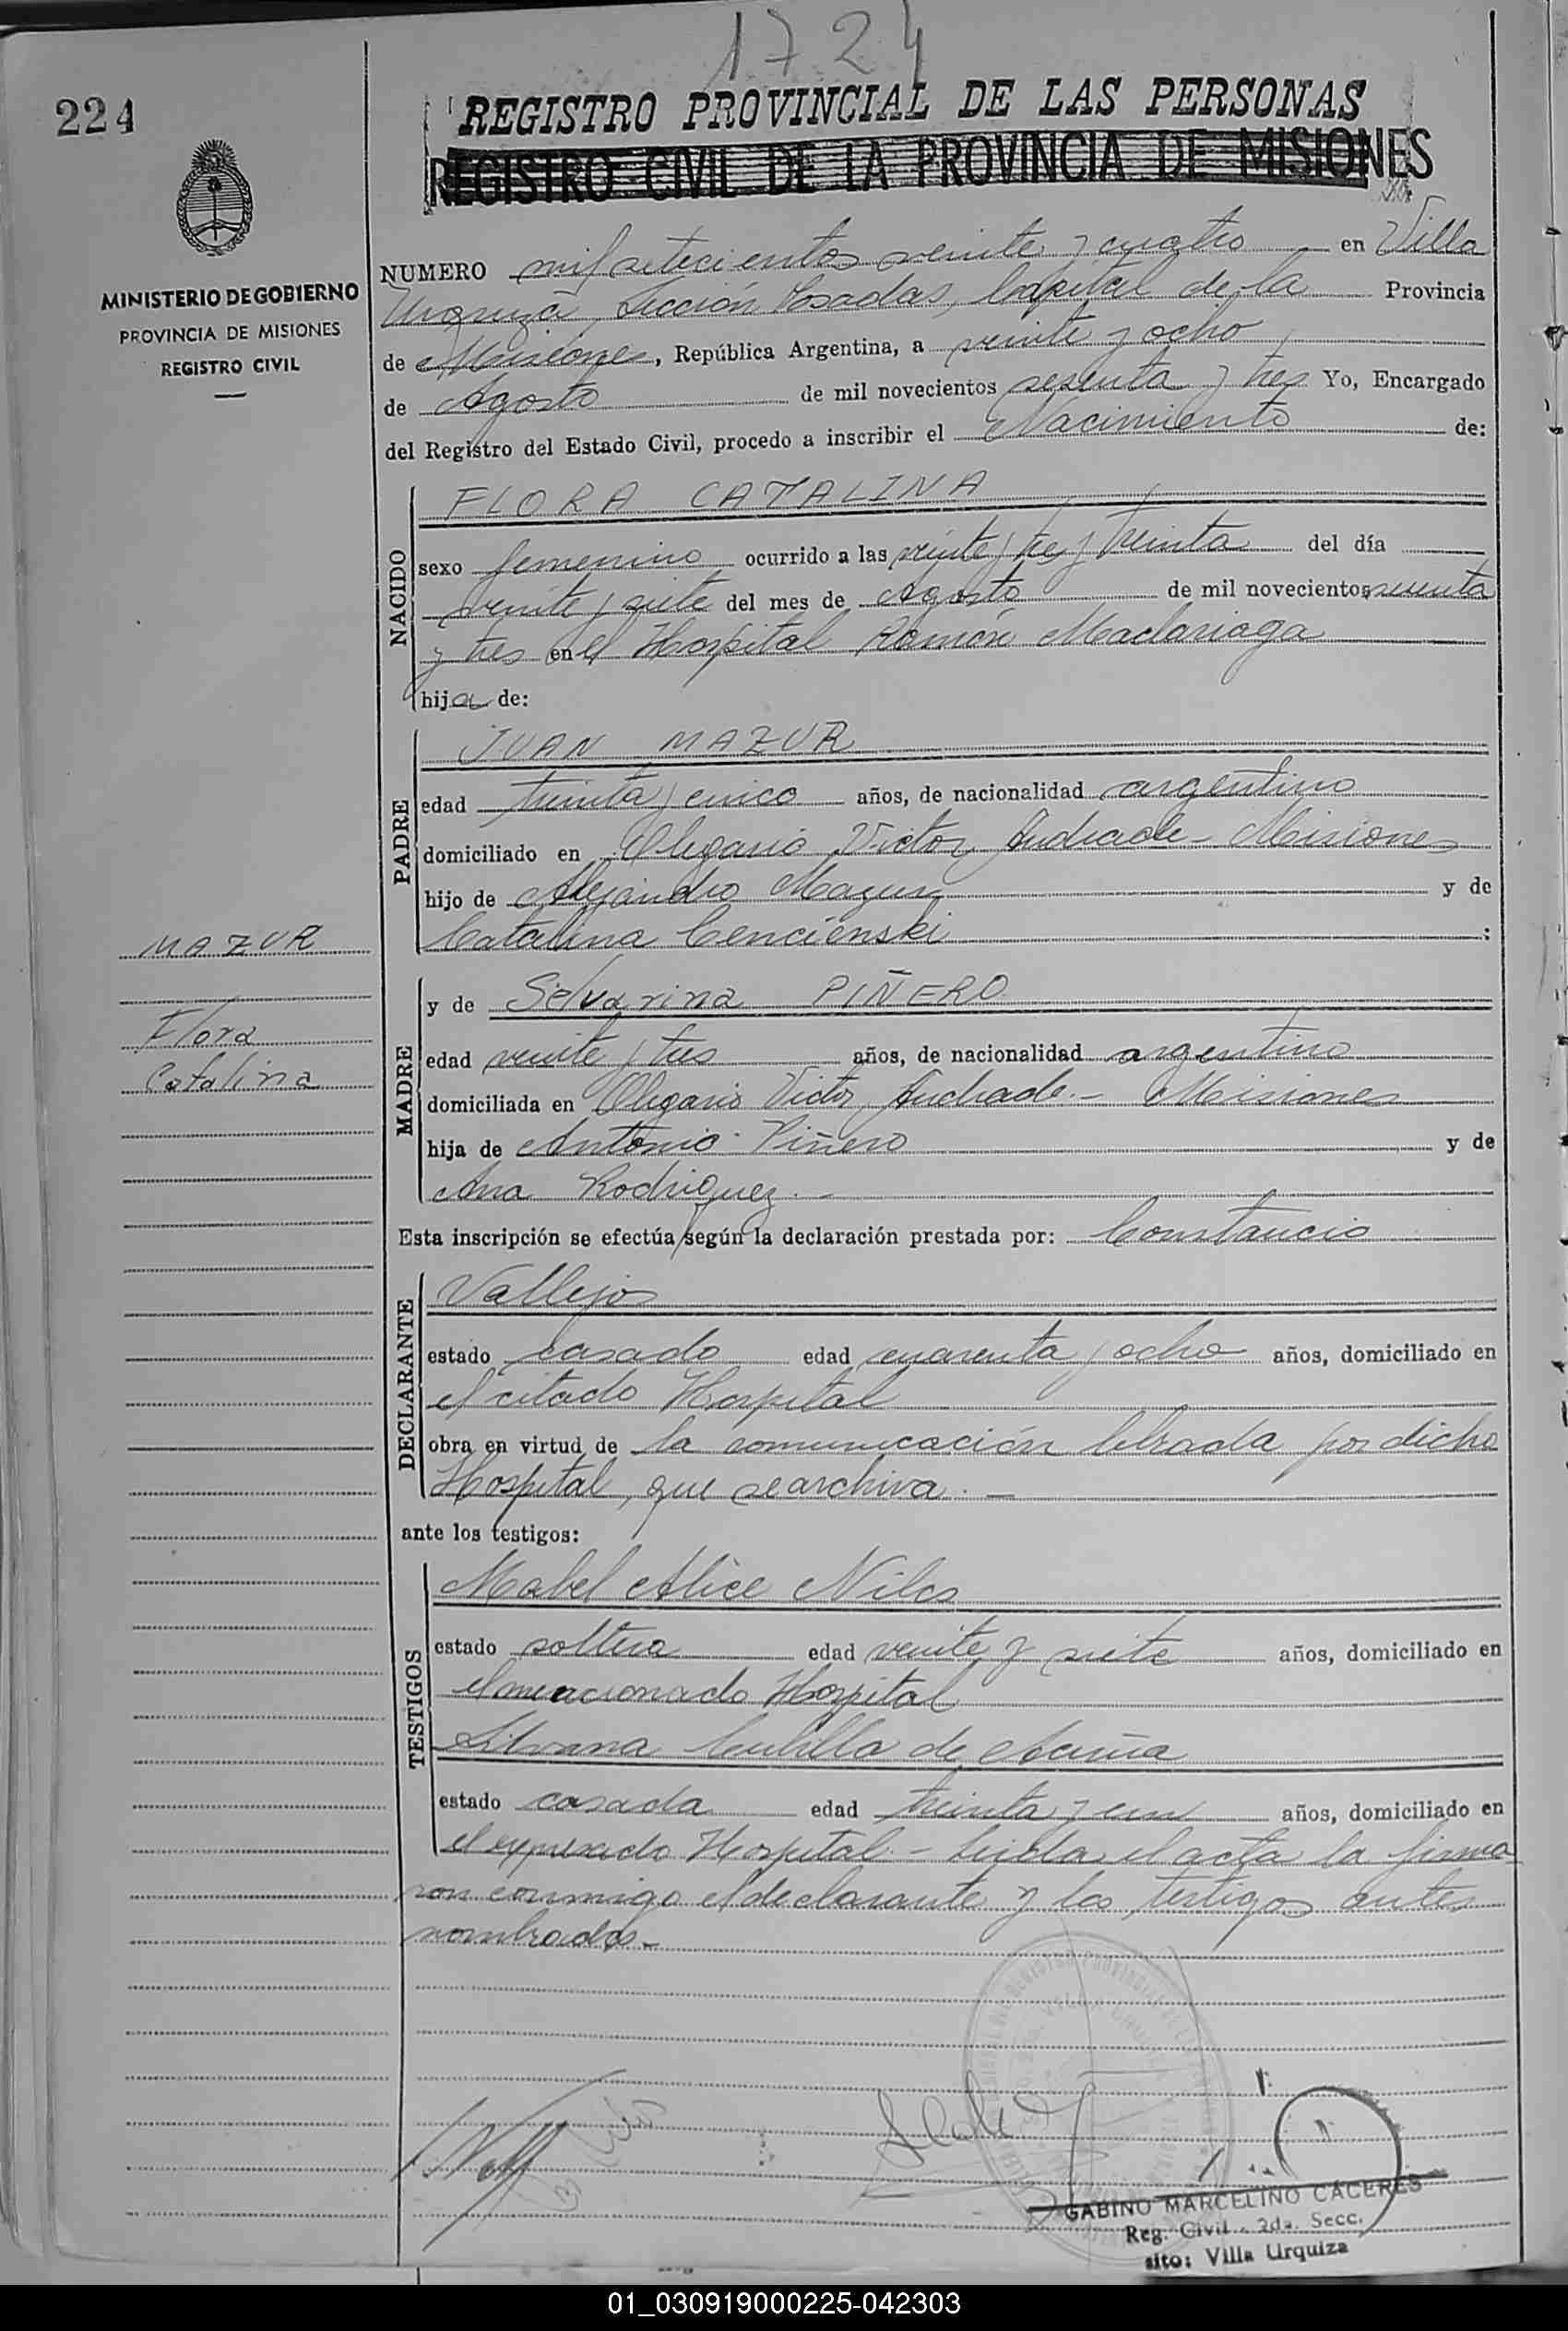 1724
224
REGISTRO PROVINCIAL DE LAS PERSONAS
REGISTRO CIVIL DE LA PROVINCIA DE MISIONES
MINISTERIO DE GOBIERNO
PROVINCIA DE MISIONES
REGISTRO CIVIL
NUMERO mil setecientos veinte y cuatro en Villa
Urquiza, Sección Posadas, Capital de la Provincia
de Misiones, República Argentina, a veinte y ocho
de Agosto de mil novecientos sesenta y tres Yo, Encargado
del Registro del Estado Civil, procedo a inscribir el Nacimiento de:
NACIDO
FLORA CATALINA
sexo femenino ocurrido a las veinte y tres y treinta del día
veinte y siete del mes de Agosto de mil novecientos sesenta
y tres en el Hospital Ramón Madariaga
hija de:
PADRE
JUAN MAZUR
edad treinta y cinco años, de nacionalidad argentino
domiciliado en Olegario Victor Andrade - Misiones
hijo de Alejandro Mazur y de
Catalina Cencienski :
MAZUR
Flora
Catalina
MADRE
y de Selvarina PIÑERO
edad veinte y tres años, de nacionalidad argentino
domiciliada en Olegario Victor Andrade.- Misiones
hija de Antonio Piñero y de
Ana Rodriguez.-
Esta inscripción se efectúa según la declaración prestada por: Constancio
DECLARANTE
Vallejos
estado casado edad cuarenta y ocho años, domiciliado en
el citado Hospital
obra en virtud de la comunicación librada por dicho
Hospital, que se archiva.-
ante los testigos:
TESTIGOS
Mabel Alice
estado soltera edad veinte y siete años, domiciliado en
el mencionado Hospital
de Acuña
estado casada edad treinta y un años, domiciliado en
el expresado Hospital.- Leída el acta la firma
ron conmigo el declarante y los testigos antes
nombrados.-
GABINO MARCELINO CÁCERES
Reg. Civil - 2da. Secc.
sito: Villa Urquiza
01_030919000225-042303